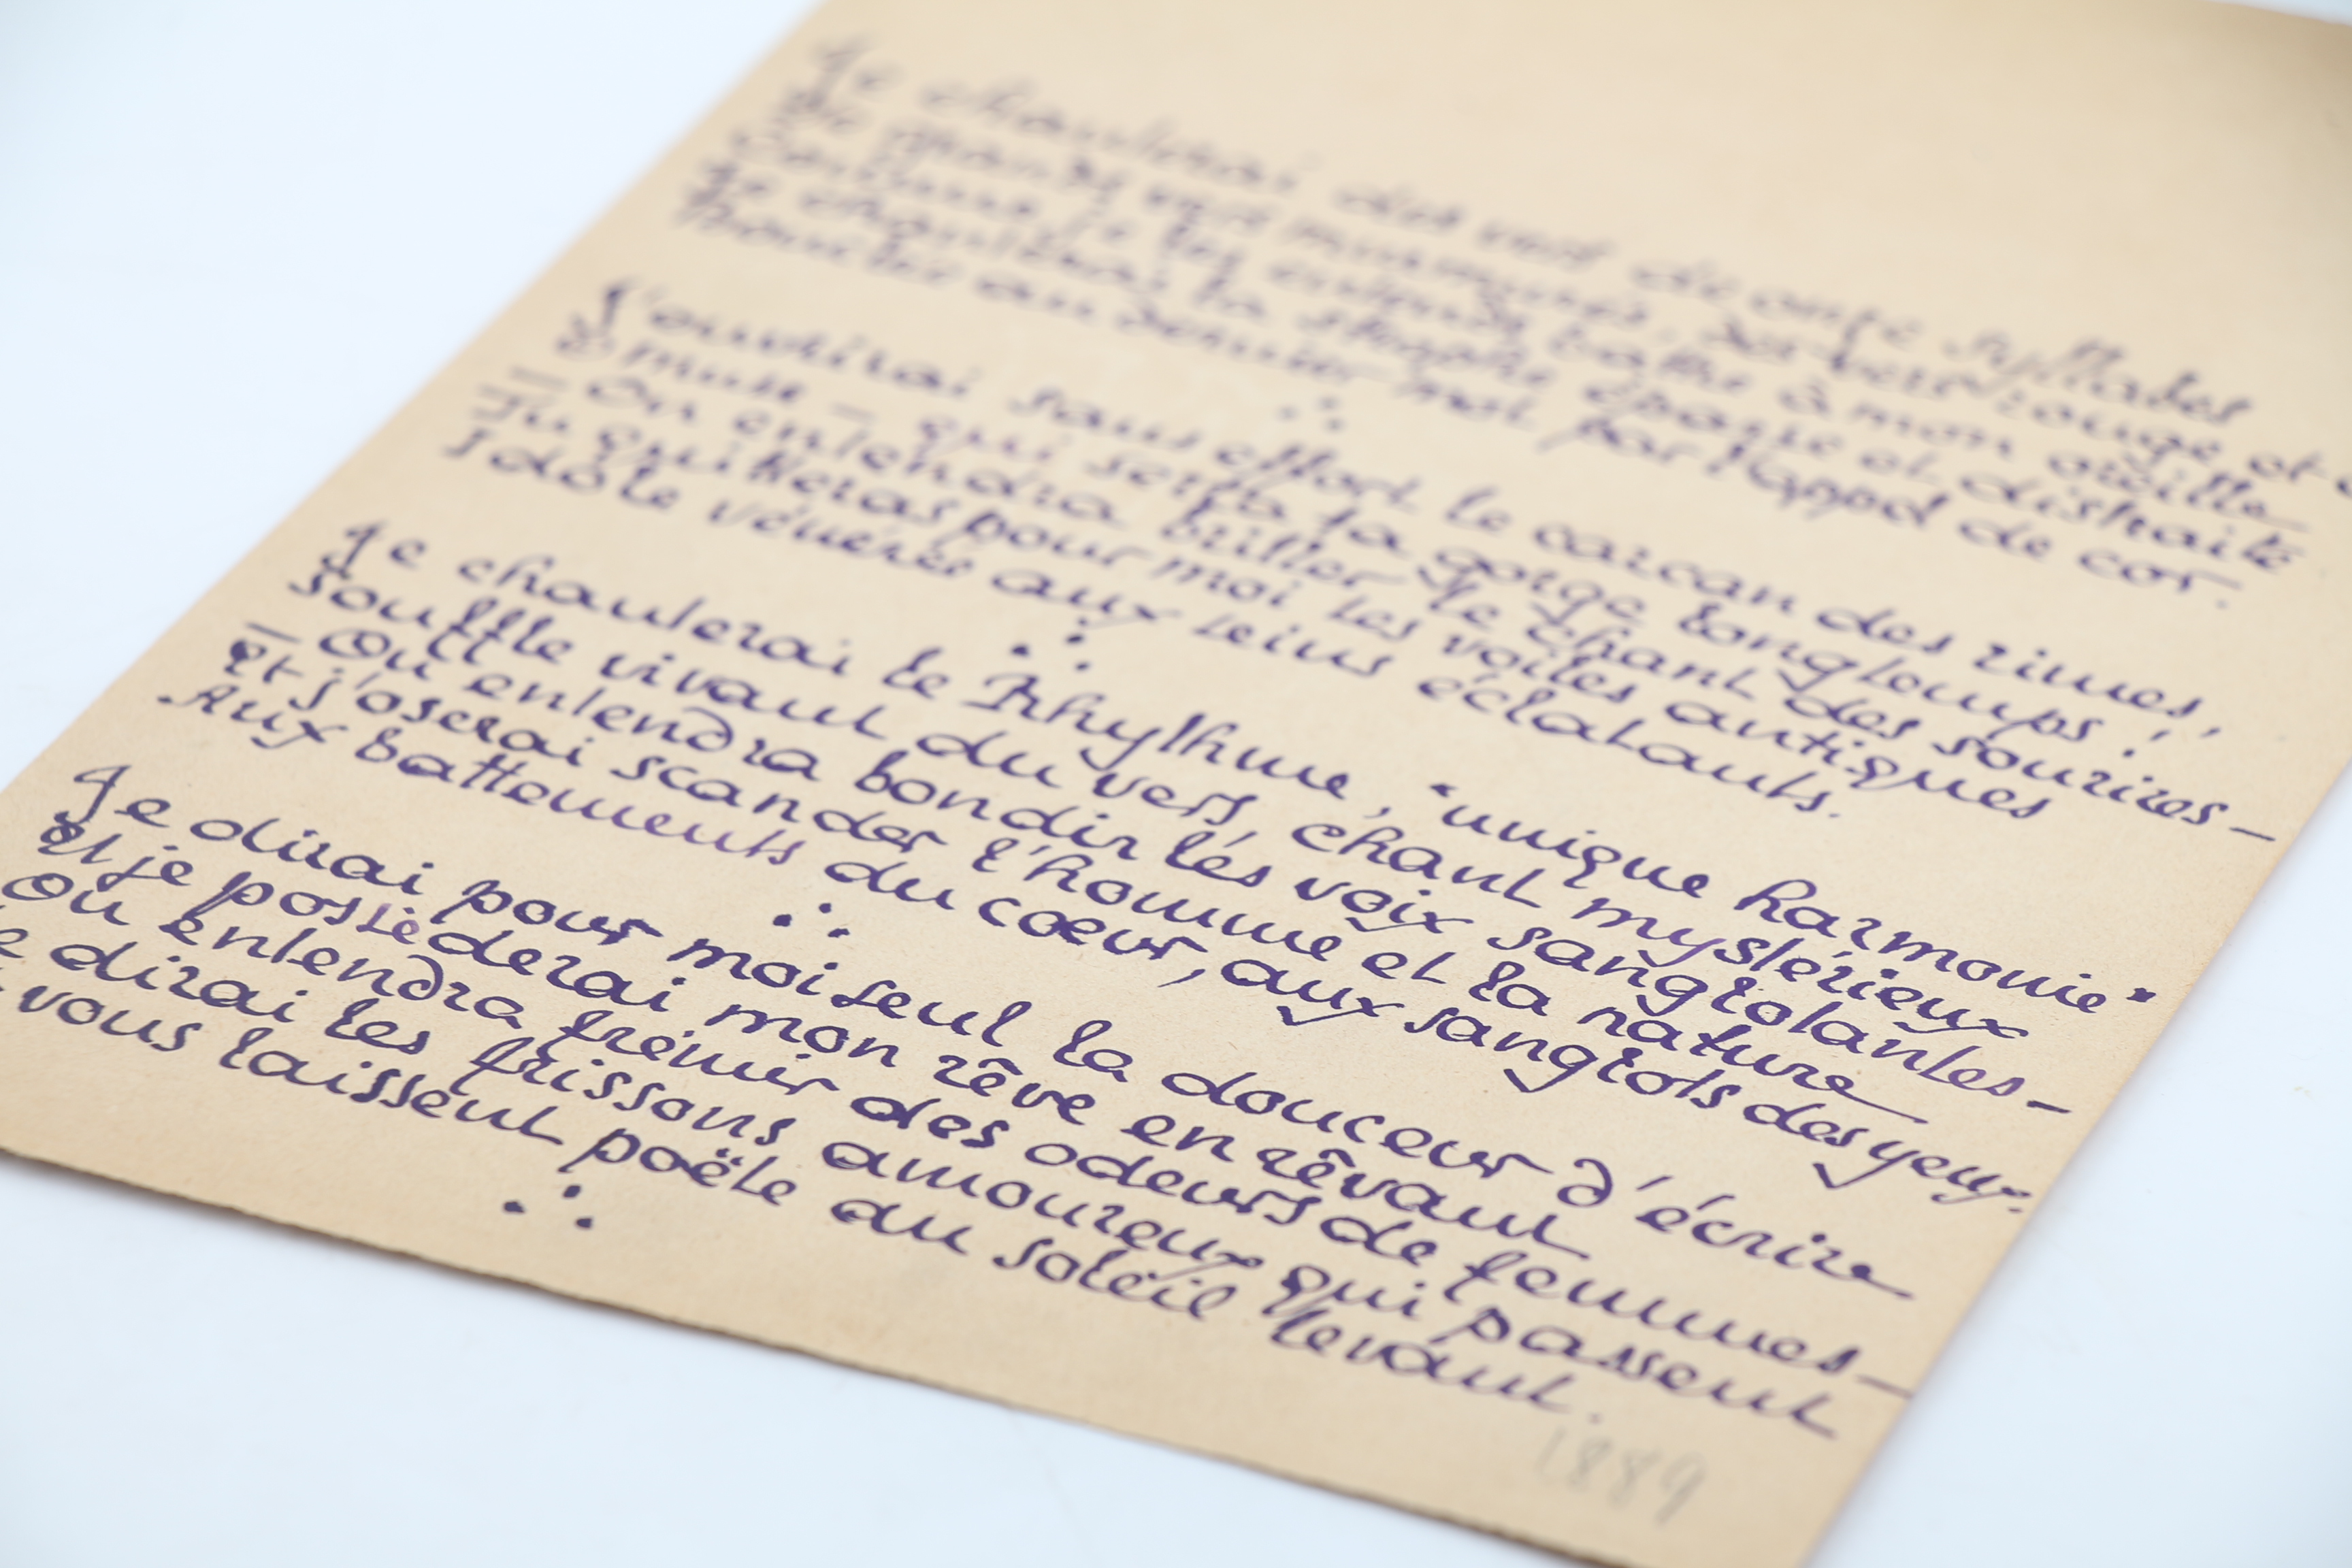 Je chanterai des vers de onze syllabes
De grands vers murmurés, des vers rouge et
Comme je les entends battre à mon oreille
Je chanterai la strophe éparse et distraite
Mourir au dernier mot par l'appel de cor.
∴
J'ouvrirai sans effort le carcan des rimes,
Ô muse – qui serra ta gorge longtemps ;
— On entendra briller le chant des sourires —
Tu quitteras pour moi les voiles antiques
Idole vénérée aux seins éclatants.
∴
Je chanterai le Rhythme, "unique harmonie"
Souffle vivant du vers chant mystérieux
— On entendra bondir les voix sanglotantes —
Et j'oserai scander l'homme et la nature
Aux battements du cœur, aux sanglots des yeux.
∴
Je dirai pour moi seul la douceur d'écrire
Et je possèderai mon rêve en rêvant
On entendra frémir des odeurs de femmes —
e dirai les frissons amoureux qui passent
vous laissent poële au soleil levant.
∴
1889